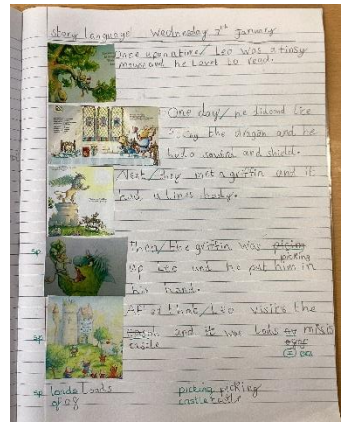 Story language Wednesday 7th January
Once upon a time/ Leo was a tinsy
mouse and he Lovet to read.
One day/ he did and like
the dragon and he
had a sword and shield.
Next/ they met a griffin and it
had a lines body.
sp Then/ the griffin was
picking
up Leo and he put him in
his hand.
Aft at that/ Leo visits the
sp and it was lods mises
castle
sp loads loads picking picking
of of castle castle